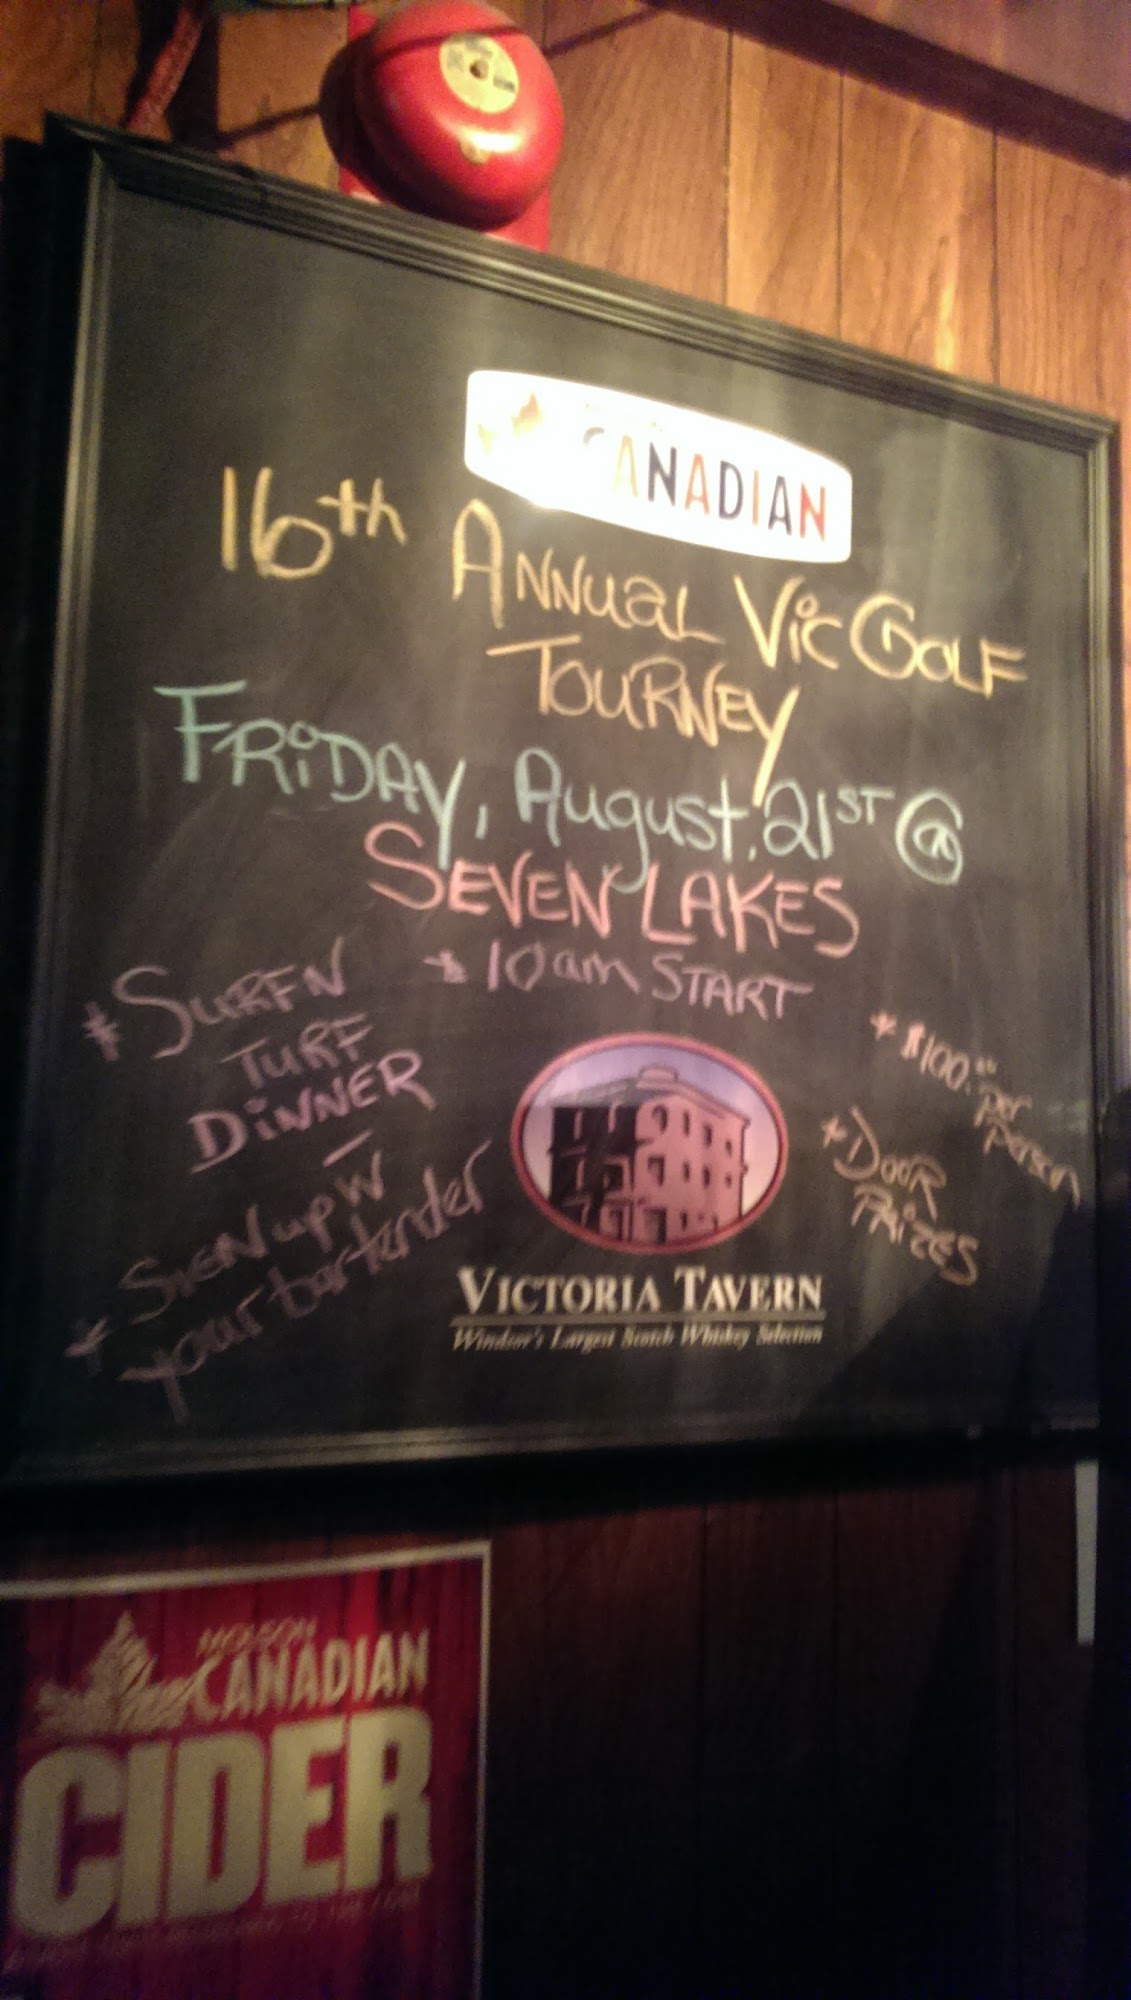 CANADIAN
16th Annual Vic Golf
Tourney
Friday, August. 21ST @
Seven Lakes
* 10am START
* Surf N
Turf
Dinner
* Sign up w
your bartender
* $100.00
per
person
* Door
Prizes
VICTORIA TAVERN
Windsor's Largest Scotch Whiskey Selection
MOLSON
CANADIAN
CIDER